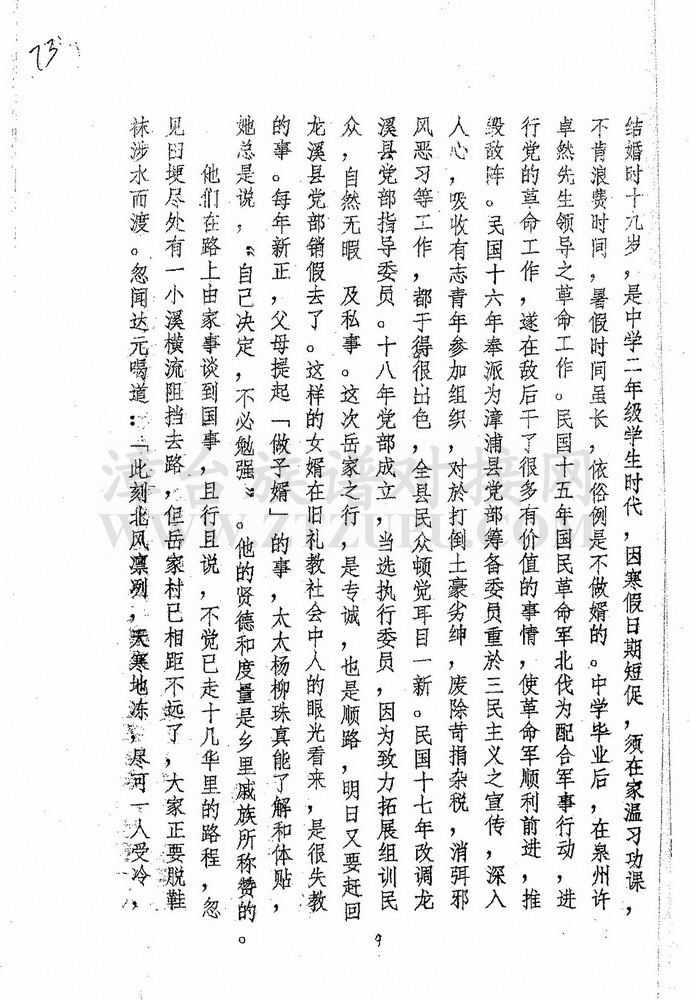 73
结婚时十九岁，是中学二年级学生时代，因寒假日期短促，须在家温习功课，
不肯浪费时间，暑假时间虽长，依俗例是不做婿的。中学毕业后，在泉州许
卓然先生领导之革命工作。民国十五年国民革命军北伐为配合军事行动，进
行党的革命工作，遂在敌后干了很多有价值的事情，使革命军顺利前进，推
毁敌阵。民国十六年奉派为漳浦县党部筹备委员重於三民主义之宣传，深入
人心，吸收有志青年参加组织，对於打倒土豪劣绅，废除苛捐杂税，消弭邪
风恶习等工作，都于得很出色，全县民众顿党耳目一新。民国十七年改调龙
溪县党部指导委员。十八年党部成立，当选执行委员，因为致力拓展组训民
众，自然无暇 及私事。这次岳家之行，是专诚，也是顺路，明日又要赶回
龙溪县党部销假去了。这样的女婿在旧礼教社会中人的眼光看来，是很失教
的事。每年新正，父母提起「做子婿」的事，太太杨柳珠真能了解和体贴，
她总是说，“自己决定，不必勉强”。他的贤德和度量是乡里戚族所称赞的。
他们在路上由家事谈到国事，且行且说，不觉已走十几华里的路程，忽
见田埂尽处有一小溪横流阻挡去路，但岳家村已相距不远了，大家正要脱鞋
袜涉水而渡。忽闻达元喝道：「此刻北风凛冽，天寒地冻，尽可一人受冷，
9
漳台族谱对接网
WWW.ZTZUPU.COM